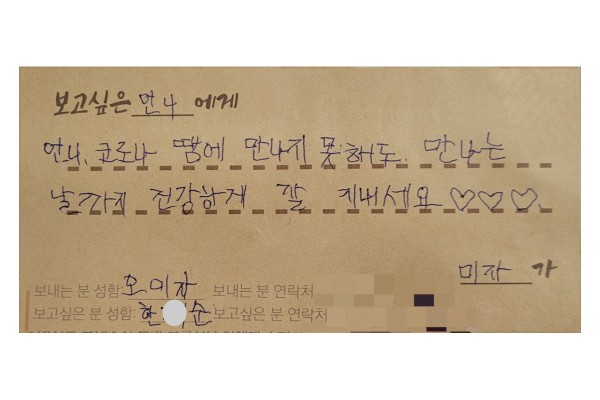 보고싶은 언니 에게
언니, 코로나 땜에 만나지 못해도. 만나는
날까지 건강하게 잘 지내세요 ♡♡♡.
미자 가
보내는 분 성함: 오미자 보내는 분 연락처
보고싶은 분 성함: 한 순 보고싶은 분 연락처